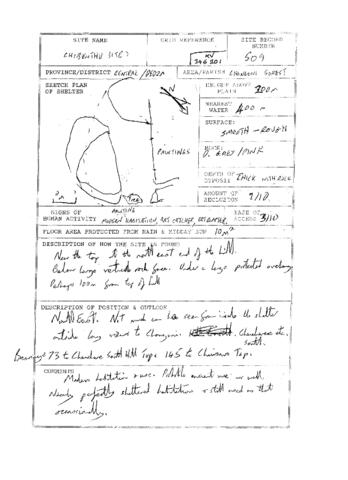 SITE NAME
GRID REFERENCE
SITE RECORD NUMBER
509
PROVINCE/DISTRICT CENTRAL/DEDZA
AREA/PARISH CHONGONI FOREST
SKETCH PLAN OF SHELTER
HEIGHT ABOVE PLAIN 200m
NEAREST WATER 400m
SURFACE: SMOOTH - ROUGH
PAINTINGS
ROCK: GREY/PINK
DEPTH OF DEPOSIT THICK WITH ROCK
AMOUNT OF SECLUSION 7/10
Tree
SIGNS OF HUMAN ACTIVITY
PAINTING
MODERN HABITATION,
EASE OF ACCESS 3/10
FLOOR AREA PROTECTED FROM RAIN & MIDDAY SUN 10m²
DESCRIPTION OF HOW THE SITE IS FOUND
Near the top to the north east end of the hill.
Below large vertical rock face. Under a large protected overhang
Perhaps 100m from top of hill
DESCRIPTION OF POSITION & OUTLOOK
North East. Not much can be seen from inside the shelter
outside long views to Chongoni. etc.
South.
Bearings 73 to South Hill Top. 145 to Top.
COMMENTS
Modern habitation + use. Probable ancient use as well.
Nearly perfectly sheltered habitation + still used as that
occasionally.